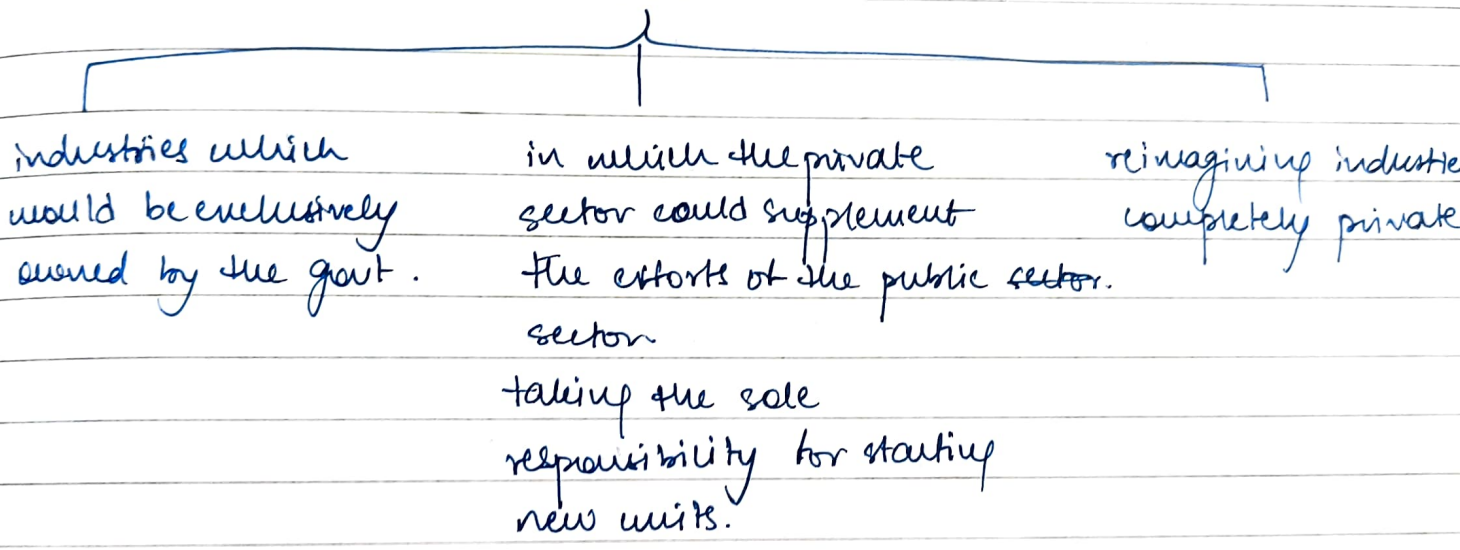 industries which
would be exclusively
owned by the govt.
in which the private
sector could supplement
the efforts of the public sector.
sector
taking the sole
responsibility for starting
new units.
reimagining industie
completely private